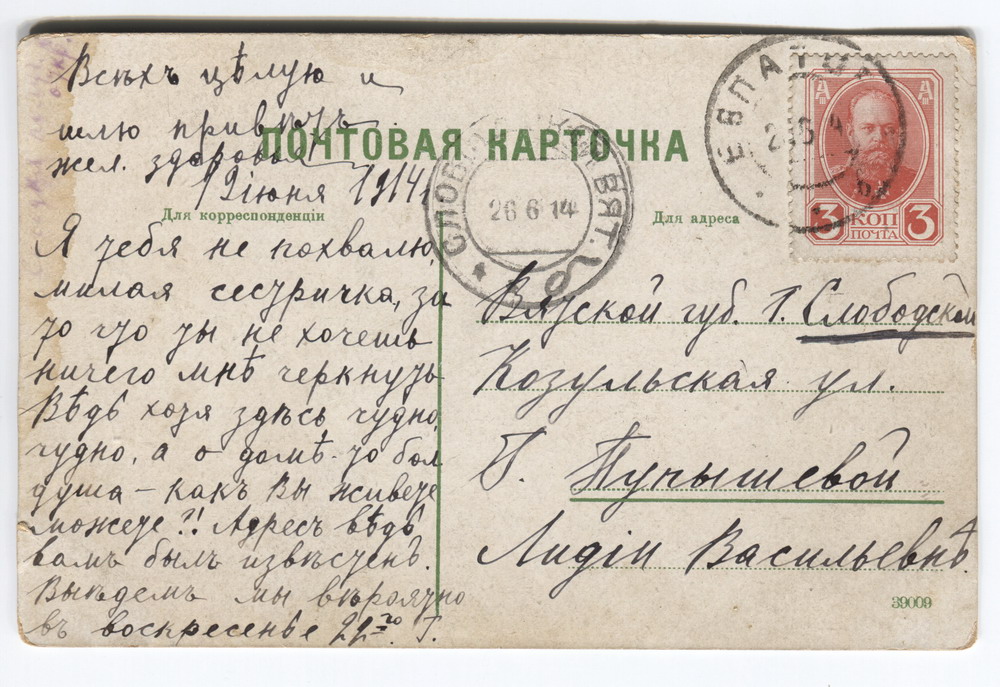 Всѣхъ цѣлую и
шлю привѣтъ
жел. здоровья!
ПОЧТОВАЯ КАРТОЧКА
19 іюня 1914
Для корреспонденціи
Я тебя не похвалю,
милая сестричка, за
то что ты не хочешь
ничего мнѣ черкнуть
Вѣдь хотя здѣсь чудно,
чудно, а о домѣ-то бол
душа – какъ вы живете
можете?! Адресъ вѣдь
вамъ былъ извѣстенъ.
Выѣдемъ мы вѣроятно
въ воскресенье 22го Г.
СЛОВ ВЯТ.
26 6 14
ЕВПАТ
Для адреса
3 КОП 3
ПОЧТА
Вятской губ. г. Слободской
Козульская ул.
Г. Пупышевой
Лидіи Васильевнѣ.
39009